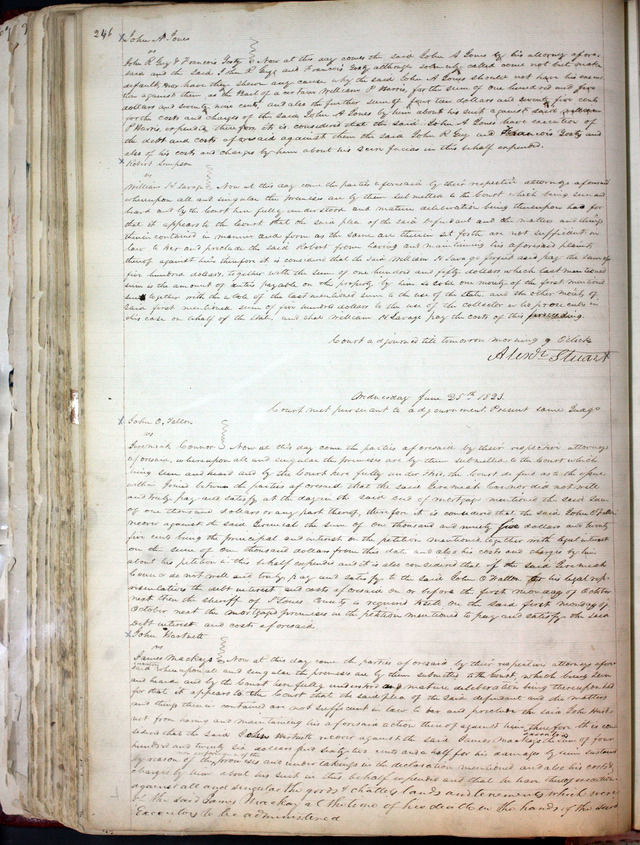 246
x John A Jones
vs
John K Guy & Francois Yosty Now at this day comes the said John A Jones by his attorney afore
said and the said John K Guy and Francois Yosty although solemnly called come not but make
default, nor have they shewn any cause why the said John A Jones should not have his execu
tion against them as the Bail of a certain William P Harris, for the sum of one hundred and five
dollars and seventy nine cents, and also the further sum of fourteen dollars and seventy five cents
for the costs and charges of the said John A Jones by him about his suit against said William
P Harris, expended therefore it is considered that the said John A Jones have execution of
the debt and costs aforesaid against them the said John K Guy and Francois Yosty and
also of his costs and charges by him about his scire facias in this behalf expended.
x Robert Simpson
vs
William H Savage Now at this day come the parties aforesaid by their respective attorneys aforesaid
whereupon all and singular the premises are by them submitted to the Court which being seen and
heard and by the Court here fully understood and mature deliberation being thereupon had for
that it appears to the Court that the said plea of the said defendant and the matters and things
therein contained in manner and form as the same are therein set forth are not sufficient in
law to bar and preclude the said Robert from having and maintaining his aforesaid plaint
thereof against him therefore it is considered that the said William H Savage forfeit and pay the sum of
five hundred dollars, together with the sum of one hundred and fifty dollars which last mentioned
sum is the amount of duties payable on the property by him sold one moiety of the first mentioned
sum together with the whole of the last mentioned sum to the use of the state, and the other moiety of
said first mentioned sum of five hundred dollars to the use of the collector who prosecutes in
this case on behalf of the State, and that William H Savage pay the costs of this proceeding.
Court adjourned till tomorrow morning 9 OClock
Alexr Stuart
Wednesday June 25th 1823.
Court met pursuant to adjournment. Present same Judge
x John O. Fallon
vs
Jeremiah Connor Now at this day come the parties aforesaid by their respective attorneys
aforesaid, whereupon all and singular the premises are by them submitted to the Court which
being seen and heard and by the Court here fully understood, the Court do find as to the issue
within Joined between the parties aforesaid that the said Jeremiah Connor did not well
and truly pay and satisfy at the day in the said deed of mortgage mentioned the said Sum
of one thousand dollars or any part thereof, therefore it is considered that the said John O Fallon
recover against the said Jeremiah the sum of one thousand and ninety five dollars and twenty
five cents being the principal and interest in the petition mentioned together with legal interest
on the sum of one thousand dollars from this date and also his costs and charges by him
about his petition in this behalf expended and it is also considered that if the said Jeremiah
Connor do not well and truly pay and satisfy to the said John O Fallon or his legal repre
sentatives the debt interest and costs aforesaid on or before the first monday of October
next then the sheriff of St Louis County is required to sell on the said first monday of
October next the mortgaged premises in the petition mentioned to pay and satisfy the said
debt interest and costs aforesaid
x John Hartnett
vs
James Mackays Now at this day come the parties aforesaid by their respective attorneys afore
said whereupon all and singular the premises are by them submitted to the Court, which being seen
and heard and by the Court here fully understood and mature deliberation being thereupon had
for that it appears to the Court that the said plea of the said defendant and the matters
and things therein contained are not sufficient in law to bar and preclude the said John Hart
nett from having and maintaining his aforesaid action thereof against him therefore it is con
sidered that the said John Hartnett recover against the said James Mackays the sum of four
hundred and twenty six dollars and sixty two cents and a half for his damages by him sustained
by reason of the promises and undertakings in the declaration mentioned and also his costs &
charges by him about his suit in this behalf expended and that he have thereof execution
against all and singular the goods & chattels lands and tenements which were
of the said James Mackay at the time of his death in the hands of the said
Executors to be administered